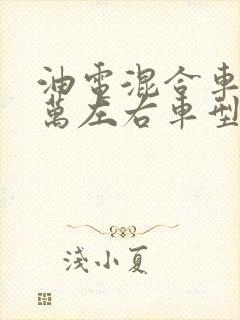 油電混合車
萬左右車型
淺小夏